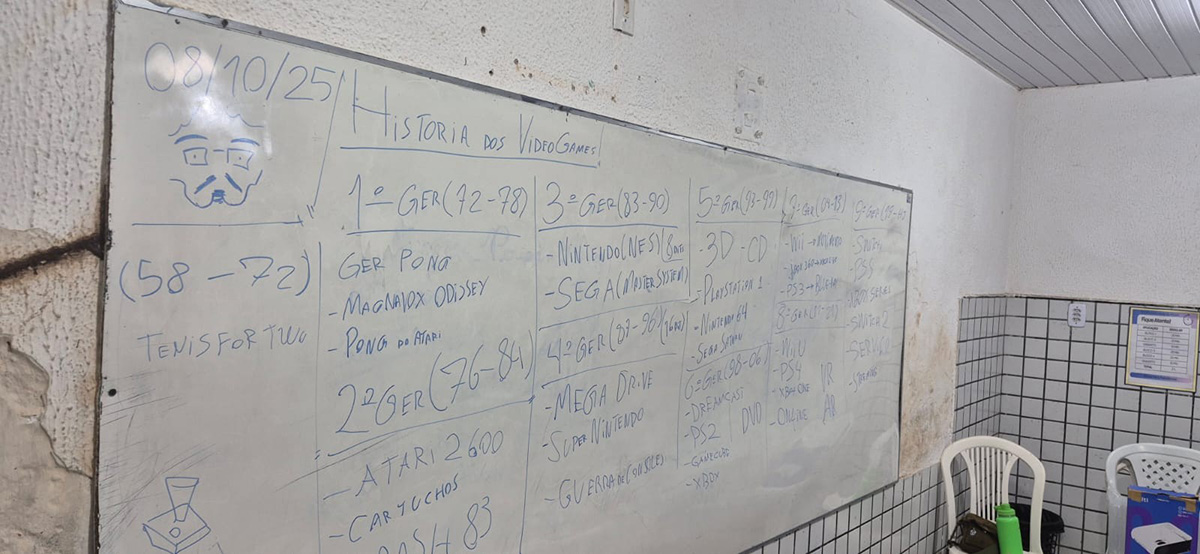 08/10/25
HISTORIA DOS VIDEOGAMES!
(58-72)
TENIS FOR TWO
1ª GER(72-78)
GER PONG
-MAGNAVOX ODISSEY
-PONG DO ATARI
2ª GER(76-84)
-ATARI 2600
-CARTUCHOS
83
3ª GER(83-90)
-NINTENDO(NES)
-SEGA(MASTER SYSTEM)
4ª GER
-MEGA DRIVE
-SUPER NINTENDO
-GUERRA DE CONSOLES
5ª GER(93-99)
-3D -CD
-PLAYSTATION 1
-NINTENDO 64
-SEGA SATURN
6ª GER(98-06)
-DREAMCAST
-PS2
DVD
-GAMECUBE
-XBOX
-WII
-PS3
-WII U
-PS4
-XBOX ONE
VR
-ONLINE
AR
-PS5
-SWITCH 2
Fique Atento!